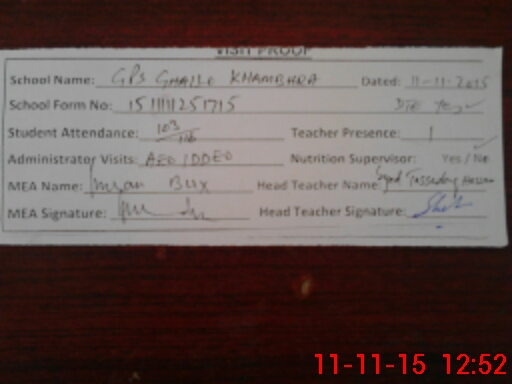 VISIT PROOF
School Name: GPS Khambhra Dated: 11-11-2015
School Form No: DTE Yes
Student Attendance: 103/116 Teacher Presence: 1
Administrator Visits: AEO/DDEO Nutrition Supervisor: Yes / No
MEA Name: Imran Bux Head Teacher Name: Syed Hassan
MEA Signature: Head Teacher Signature:
11-11-15 12:52